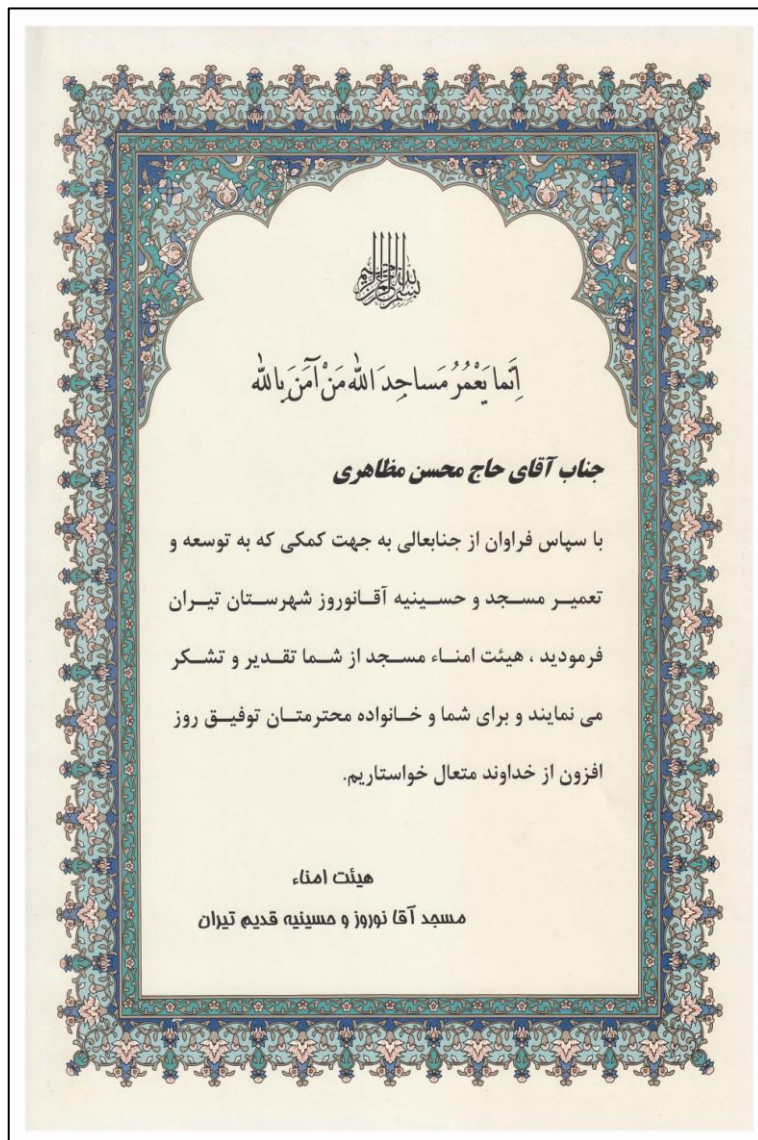 بسم الله الرحمن الرحیم
اِنَّما يَعْمُرُ مَساجِدَ اللهِ مَنْ آمَنَ بِالله
جناب آقای حاج محسن مظاهری
با سپاس فراوان از جنابعالی به جهت کمکی که به توسعه و
تعمیر مسجد و حسینیه آقانوروز شهرستان تیران
فرمودید ، هیئت امناء مسجد از شما تقدیر و تشکر
می نمایند و برای شما و خانواده محترمتان توفیق روز
افزون از خداوند متعال خواستاریم.
هیئت امناء
مسجد آقا نوروز و حسینیه قدیم تیران